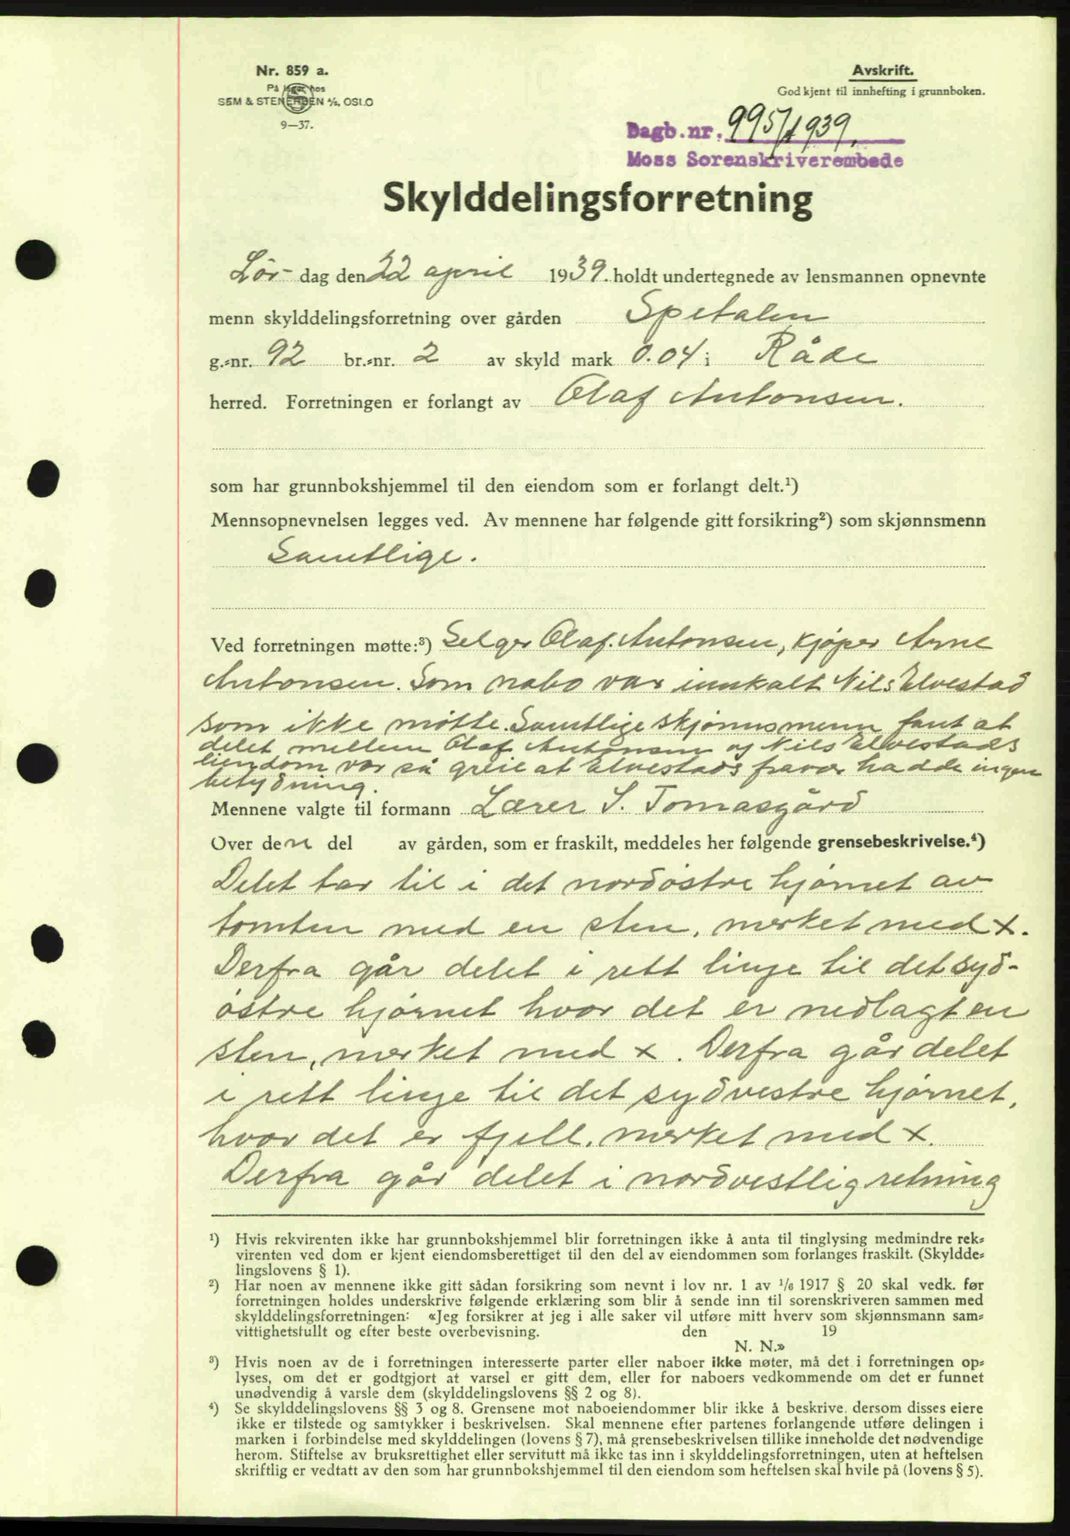 Nr. 859 a.
På lager hos
SEM & STENERSEN A/S, OSLO
9—37.
Avskrift.
Godkjent til innhefting i grunnboken.
Dagb.nr. 995/1939.
Moss Sorenskriverembede
Skylddelingsforretning
Lør- dag den 22 april 1939. holdt undertegnede av lensmannen opnevnte
menn skylddelingsforretning over gården Spetalen
g.-nr. 92 br.-nr. 2 av skyld mark 0.04 i Råde
herred. Forretningen er forlangt av Olaf Antonsen.
som har grunnbokshjemmel til den eiendom som er forlangt delt.¹)
Mennsopnevnelsen legges ved. Av mennene har følgende gitt forsikring²) som skjønnsmenn
Samtlige.
Ved forretningen møtte:³) Selger Olaf Antonsen, kjøper Arne
Antonsen. Som nabo var innkalt Nils Elvestad
som ikke møtte. Samtlige skjønnsmenn fant at
delet mellem Olaf Antonsen og Nils Elvestads
eiendom var så greie at Elvestads fravær hadde ingen
betydning.
Mennene valgte til formann Lærer S. Tomasgård
Over den del av gården, som er fraskilt, meddeles her følgende grensebeskrivelse.⁴)
Delet tar til i det nordøstre hjørnet av
tomten med en sten, merket med x.
Derfra går delet i rett linje til det syd-
østre hjørnet hvor det er nedlagt en
sten, merket med x. Derfra går delet
i rett linje til det sydvestre hjørnet,
hvor det er fjell, merket med x.
Derfra går delet i nordvestlig retning
¹) Hvis rekvirenten ikke har grunnbokshjemmel blir forretningen ikke å anta til tinglysing medmindre rek-
virenten ved dom er kjent eiendomsberettiget til den del av eiendommen som forlanges fraskilt. (Skyldde-
lingslovens § 1).
²) Har noen av mennene ikke gitt sådan forsikring som nevnt i lov nr. 1 av 1/6 1917 § 20 skal vedk. før
forretningen holdes underskrive følgende erklæring som blir å sende inn til sorenskriveren sammen med
skylddelingsforretningen: «Jeg forsikrer at jeg i alle saker vil utføre mitt hverv som skjønnsmann sam-
vittighetsfullt og efter beste overbevisning. den 19
N. N.»
³) Hvis noen av de i forretningen interesserte parter eller naboer ikke møter, må det i forretningen op-
lyses, om det er godtgjort at varsel er gitt dem, eller for naboers vedkommende om det er funnet
unødvendig å varsle dem (skylddelingslovens §§ 2 og 8).
⁴) Se skylddelingslovens §§ 3 og 8. Grensene mot naboeiendommer blir ikke å beskrive, dersom disses eiere
ikke er tilstede og samtykker i beskrivelsen. Skal mennene efter partenes forlangende utføre delingen i
marken i forbindelse med skylddelingen (lovens § 7), må grensebeskrivelsen tillike inneholde det nødvendige
herom. Stiftelse av bruksrettighet eller servitutt må ikke tas inn i skylddelingsforretningen, uten at heftelsen
skriftlig er vedtatt av den som har grunnbokshjemmel til den eiendom som heftelsen skal hvile på (lovens § 5).